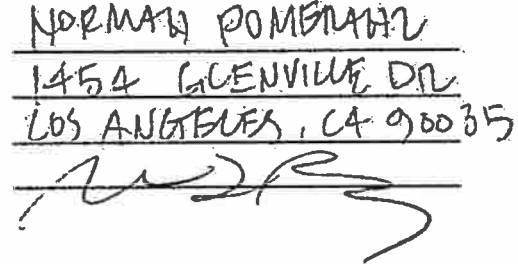 NORMAN POMERANZ
1454 GLENVILLE DR
LOS ANGELES, CA 90035